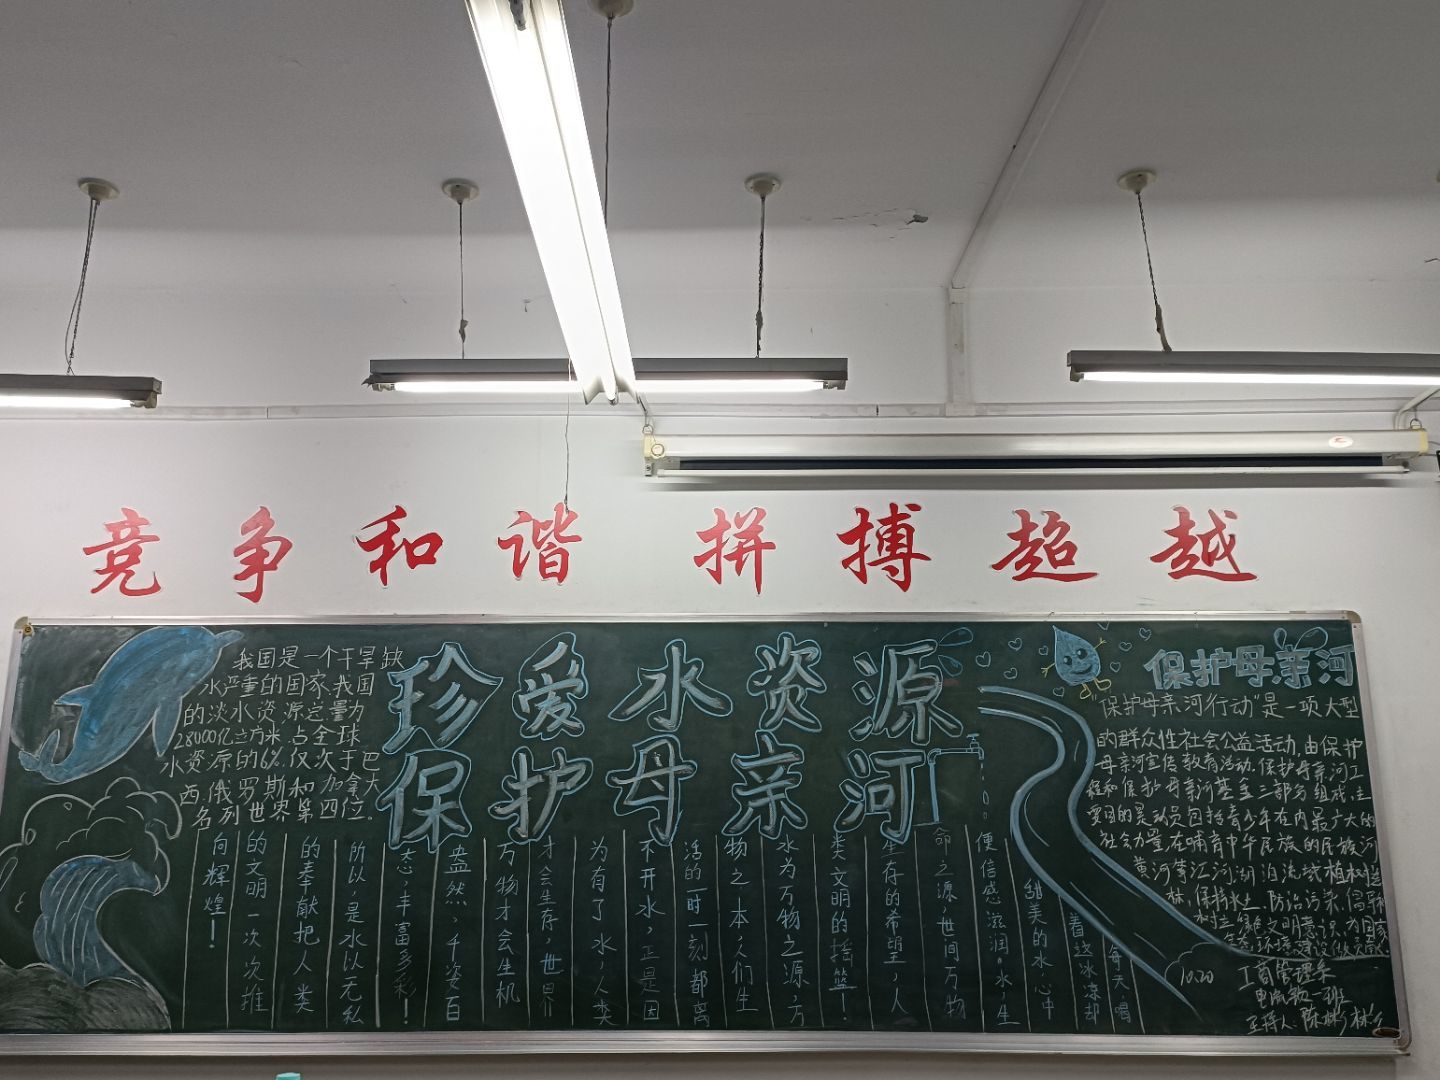 竞争和谐 拼搏超越
我国是一个干旱缺
水严重的国家.我国
的淡水资源总量为
28000亿立方米.占全球
水资源的6%.仅次于巴
西,俄罗斯和加拿大
名列世界第四位.
珍爱水资源
保护母亲河
每天,喝
着这冰凉却
甜美的水,心中
便倍感滋润。水,生
命之源,世间万物
生存的希望,人
类文明的摇篮!
水为万物之源,万
物之本,人们生
活的一时一刻都离
不开水,正是因
为有了水,人类
才会生存,世界
万物才会生机
盎然,千姿百
态,丰富多彩!
所以,是水以无私
的奉献把人类
的文明一次次推
向辉煌!
保护母亲河
保护母亲河行动"是一项大型
的群众性社会公益活动,由保护
母亲河宣传教育活动.保护母亲河工
程和保护母亲河基金三部分组成,主
要目的是动员包括青少年在内最广大的
社会力量在哺育中华民族的民族河
黄河 长江 河湖泊流域植树造
林,保持水土,防治污染,
文明意识,为国家
生态环境建设做贡献
10.20
工商管理系